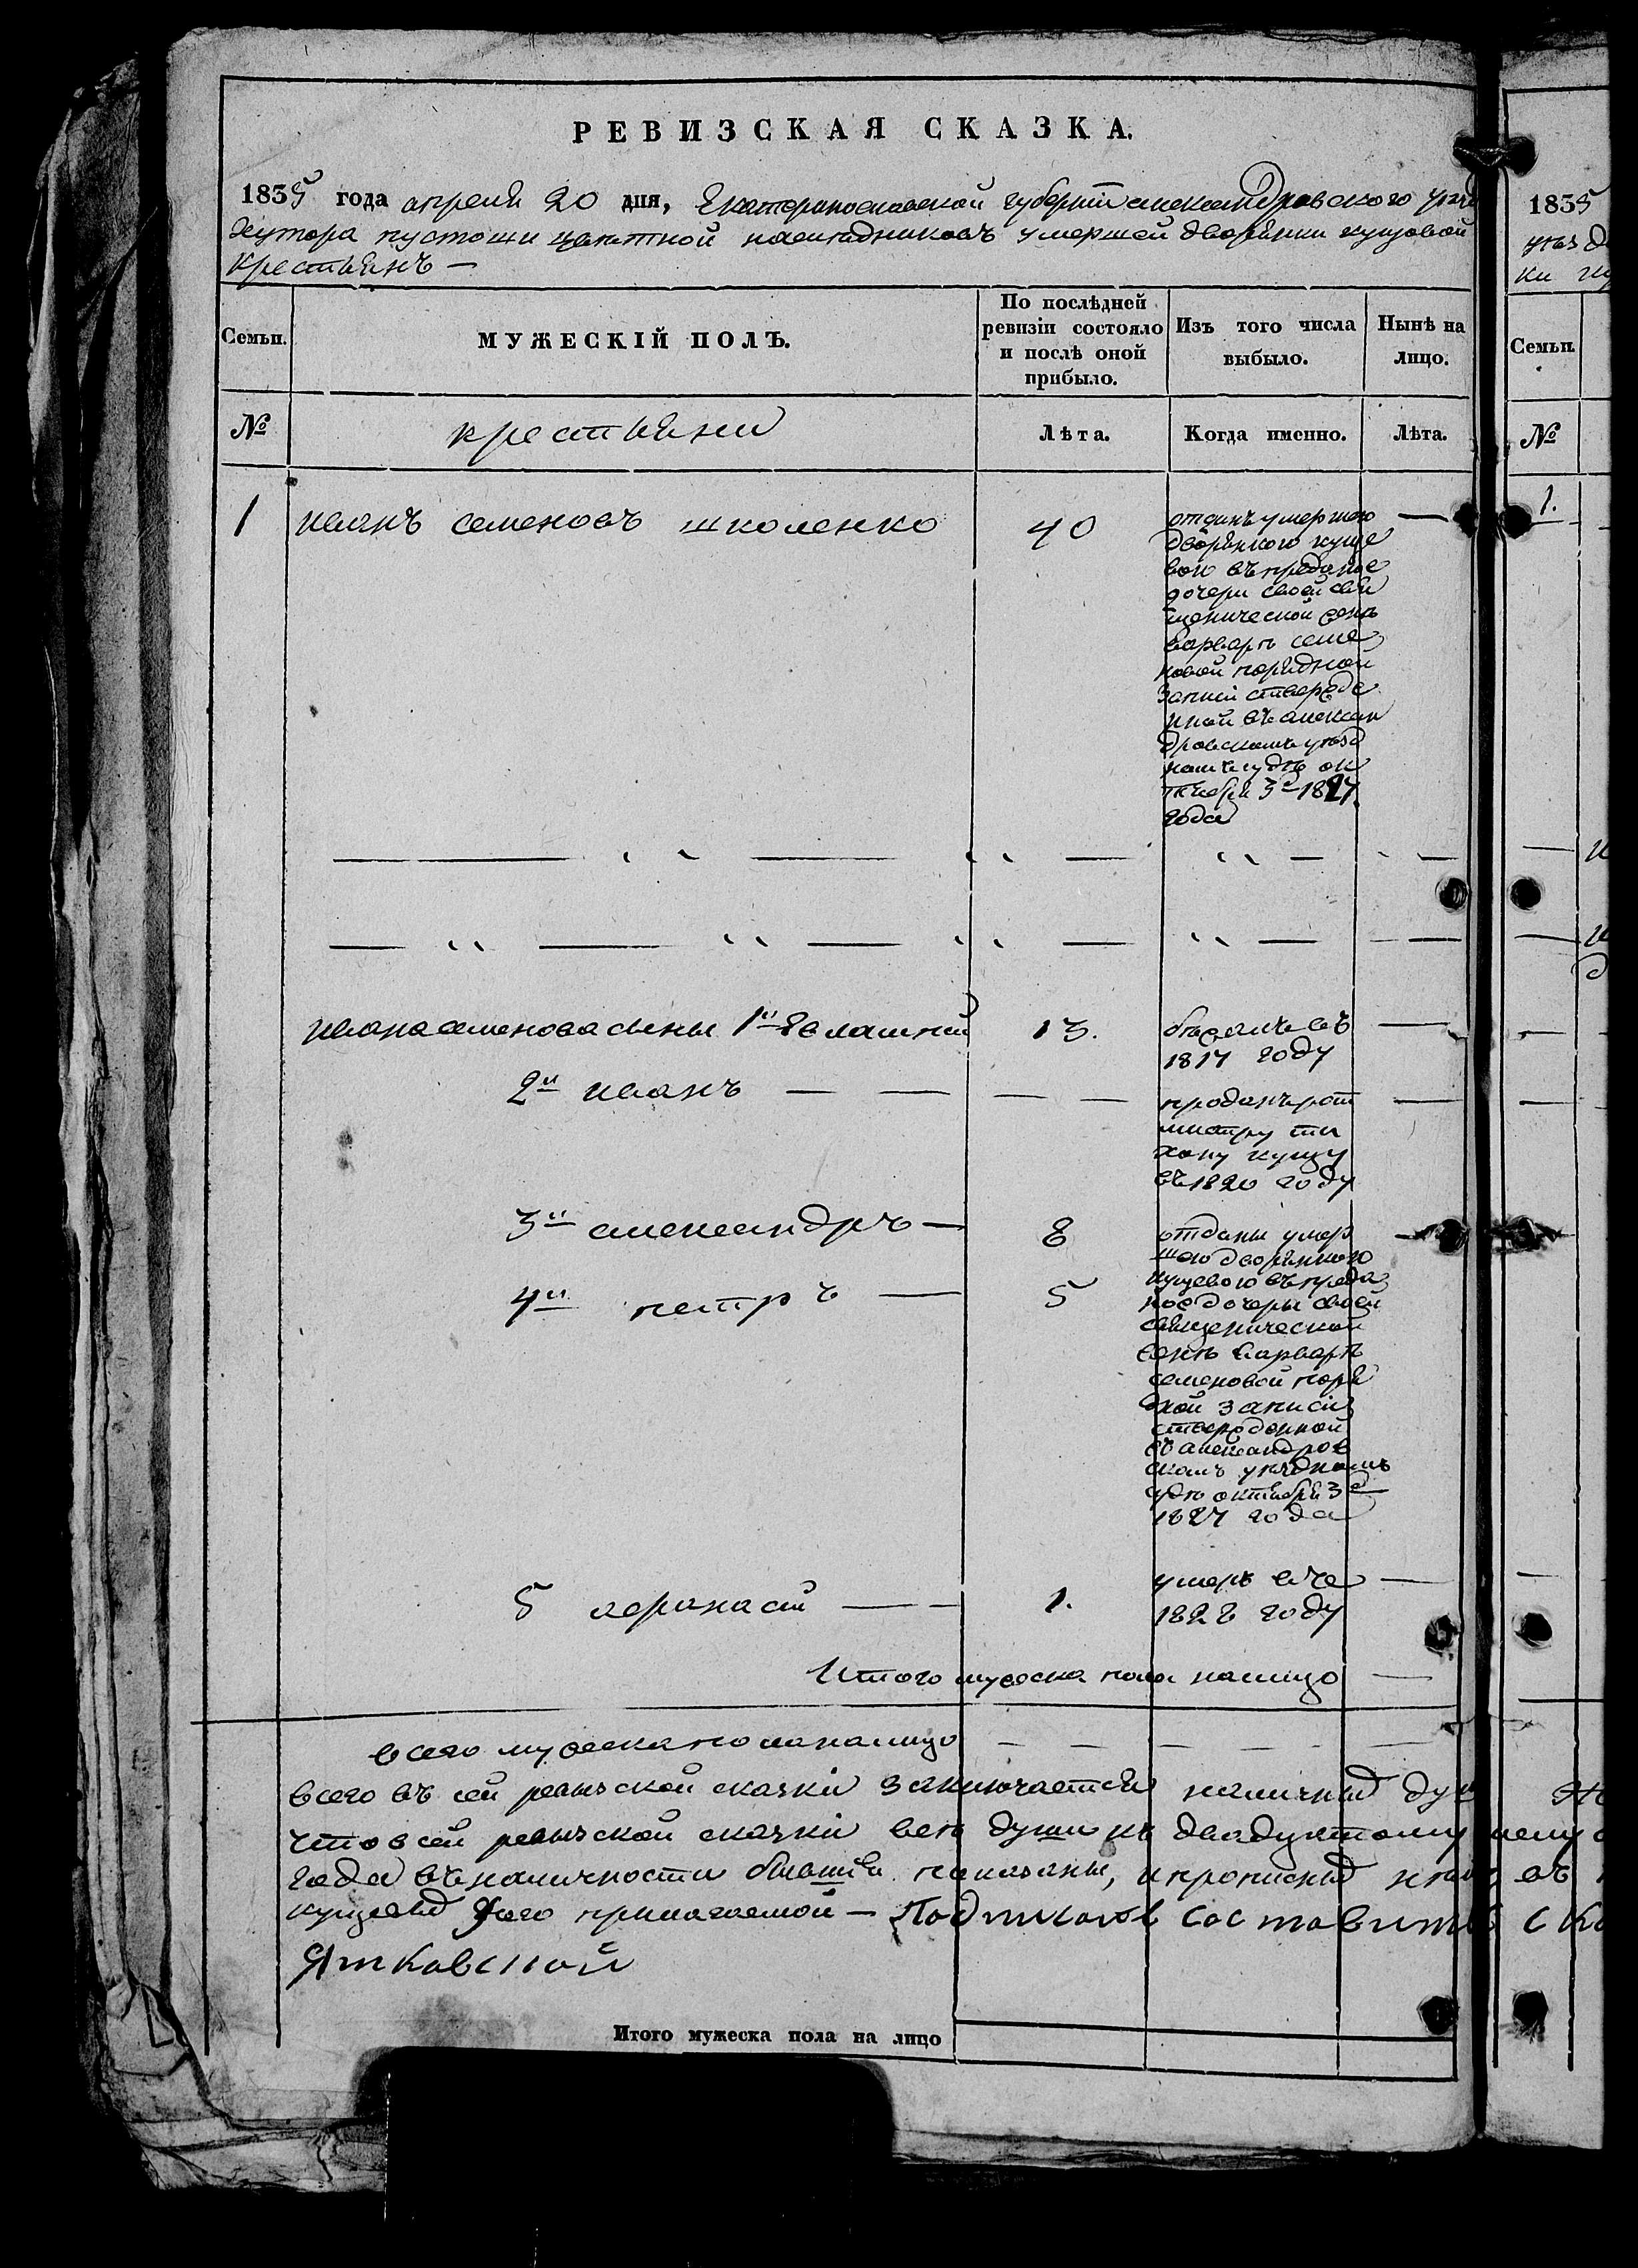 РЕВИЗСКАЯ СКАЗКА.
1835 года апреля 20 дня, Екатеринославской губернии александровского уезд
Хутора пустоши цветной наследниковъ умершей дворянки кущовой
крестьянъ —
Семьи.
МУЖЕСКІЙ ПОЛЪ.
По послѣдней ревизіи состояло и послѣ оной прибыло.
Изъ того числа выбыло.
Нынѣ на лицо.
№
крестьяни
Лѣта.
Когда именно.
Лѣта.
1 иванъ семеновъ школенко 40
отданъ умершею
дворянкою куще
вои въ преданое
дочери своей свя
щенической женѣ
варварѣ семе
новой порядной
записи ствержде
нной въ алексан
дровскомъ уезд
номъ судѣ ок
тября 3го 1827
года
ивана семенова сыны 1й Евлампий 13.
бежалъ въ
1817 году
2й иванъ — — — —
проданъ рот
мистру ти
хону кущу
въ 1820 году
3й александръ — 8
4й петръ — 5
отданы умер
шею дворянкою
кущевою въ преда
ное дочеры своей
священической
женѣ варварѣ
семеновой поря
дной записи
ствержденной
въ александров
скомъ уездномъ
судѣ октября 3го
1827 года
5 афанасий — — 1.
умеръ въ
1828 году
Итого мужеска пола налицо —
всего мужеска пола налицо — — — —
всего въ сей ревизской сказки заключается наличныхъ душ
что в сей ревизской сказки все души къ двадцатому
года въ наличности бывшия показаны, и прописныхъ нетъ въ
кущевыхъ прилагаемой — Подписалъ Составитель
Ятковский
Итого мужеска пола на лицо
1835
уезд
ки
Семьи.
№
1.